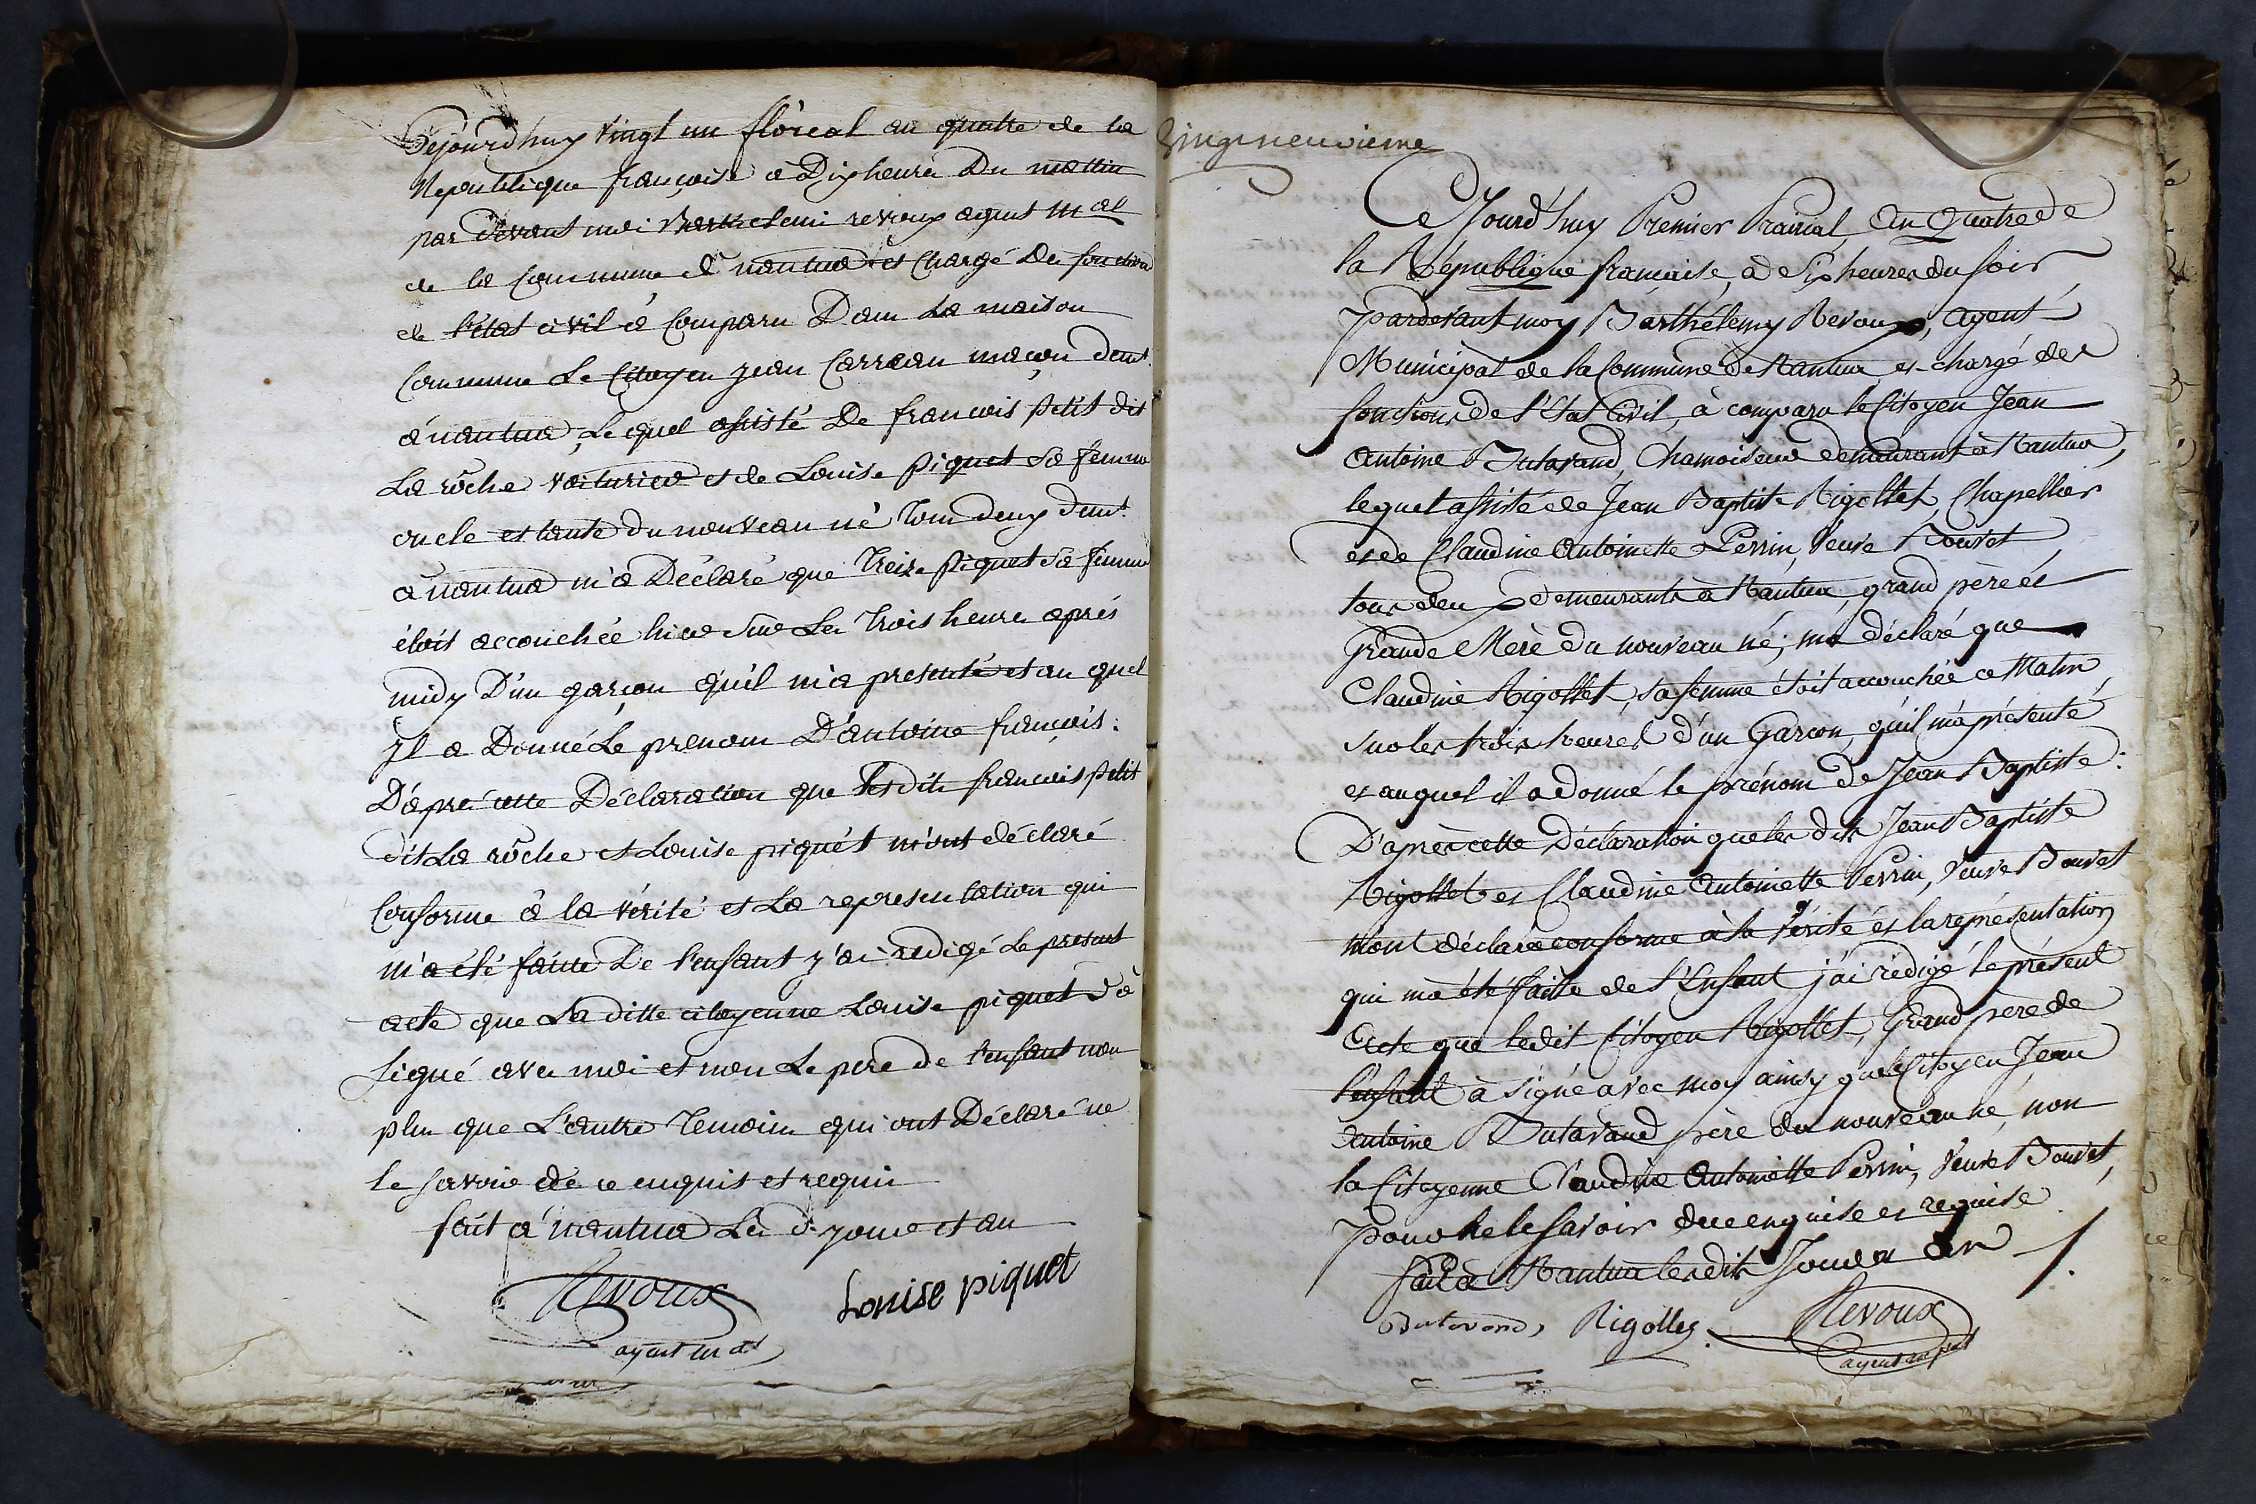 Cejourdhuy vingt un floréal an quatre de la
Republique française à Dix heure Du mattin
par devant moi Barthelemi revoux agent m al
de la Commune de nantua et Chargé De fonction
de l'état civil à Comparu Dans La maison
Commune Le Citoyen jean Carreau maçon demt
à nantua, Lequel assisté De françois petit dit
La roche voiturier et de Louise Piquet Sa femme
oncle et tante du nouveau né tous deux demt
à nantua m'a Déclaré que Piquet Sa femme
étoit accouchée hier Sur Les trois heure après
midy D'un garçon qu'il m'a presenté et au quel
jl a Donné Le prenom D'antoine françois.
D'apré cette Déclaration que Les dits françois petit
dit La roche et Louise piquét m'ont déclaré
Conforme à la vérité et La representation qui
m'a été faitte De l'enfant j'ai redigé Le present
acte que La ditte citoyenne Louise piquet à
signé avec moi et non Le pere de l'enfant non
plus que L'autre temoin qui ont Déclaré ne
le savoir de ce enquis et requis
fait a nantua Les d. jour et an
Revoux Louise piquet
agent m al
Vingt neuvieme
Ce Jourd'huy Premier Prairial An Quatre de
la République française, à Six heures du soir
pardevant moy Barthélemy Revoux, agent
Municipal de la Commune de Nantua et chargé des
fonctions de l'Etat Civil, à comparu le Citoyen Jean
Antoine Butavand, Chamoiseur demeurant à Nantua,
lequel assisté de Jean Baptiste Rigollet, Chapellier
et de Claudine Antoinette Perrin, Veuve Bouvet
tous deux demeurants à Nantua, grand père et
Grande Mère du nouveau né; ma déclaré que
Claudine Rigollet, sa femme étoit accouchée ce Matin
sur les trois heures d'un Garçon, qu'il m'a présenté
et auquel il a donné le prénom de Jean Baptiste.
D'après cette Déclaration que les dits Jean Baptiste
Rigollet et Claudine Antoinette Perrin, Veuve Bouvet
m'ont déclarée conforme à la Vérité et la représentation
qui m'a été faitte de l'Enfant j'ai rédigé le présent
Acte que ledit Citoyen Rigollet, Grand pere de
l'enfant à signé avec moy ainsy que le Citoyen Jean
Antoine Butavand père du nouveau né, non
la Citoyenne Claudine Antoinette Perrin, Veuve Bouvet,
pour ne le savoir de ce enquise et requise
fait à Nantua les dits Jour et an
Butavand, Rigollet. Revoux
agent mpal